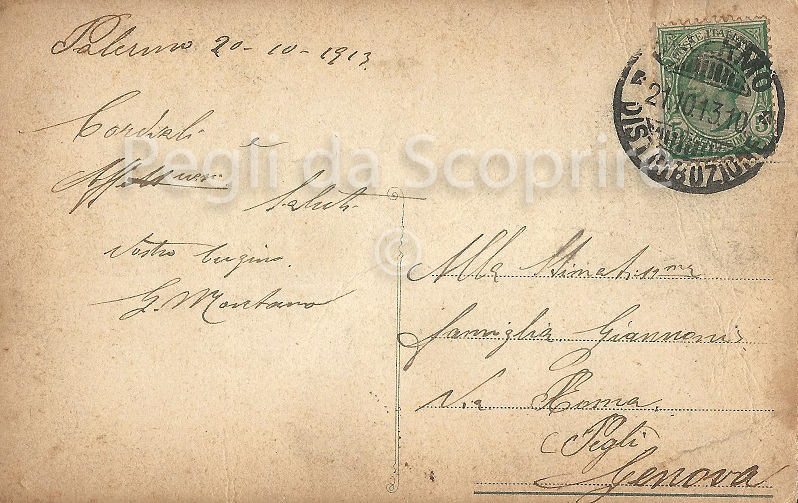 Palermo 20-10-1913.
Cordiali e
Saluti
Vostro Cugino
G. Montano
Alla Stimatissma
famiglia Giannoni
Via Roma.
Pegli
Genova
POSTE ITALIANE
21.10.13.10
DISTRIBUZIONE
Pegli da Scoprire
©